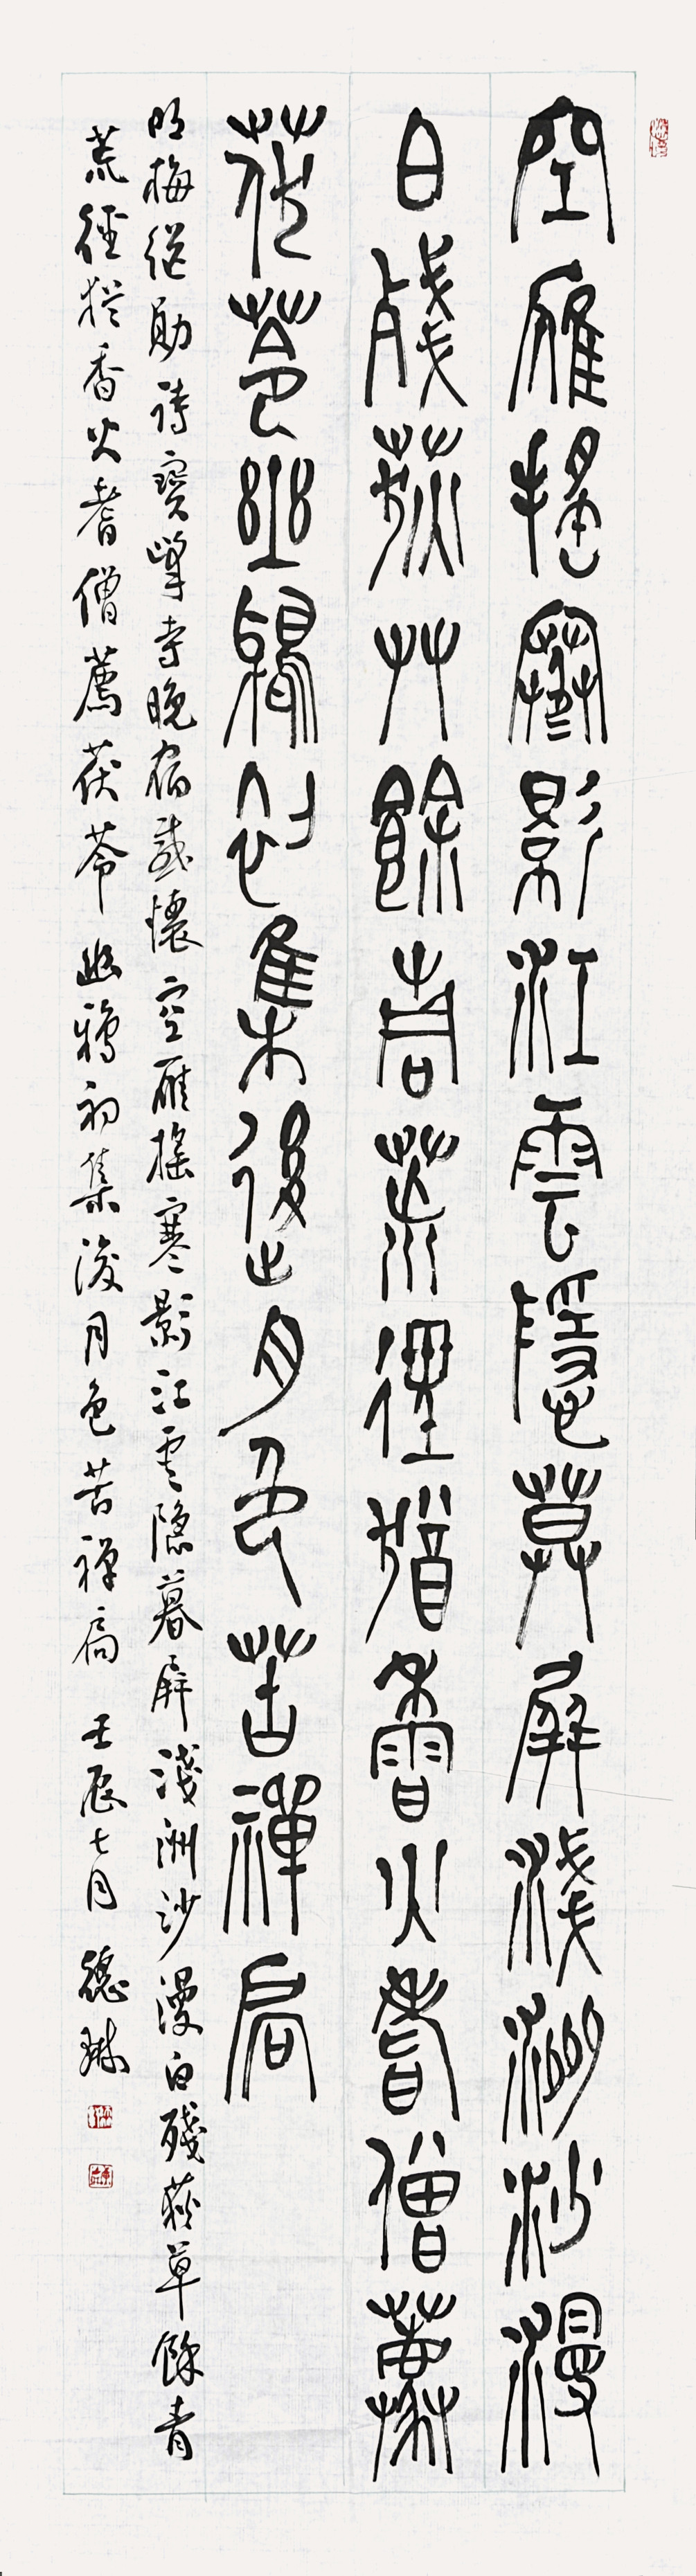 空雁搖寒影江雲隱暮屏淺洲沙漫
白殘荻艸餘青荒徑猶香火耆僧薦
茯苓幽鴉初集後月色苦禪扃
明梅繼勛詩寶峰寺晚宿感懷空雁搖寒影江雲隱暮屏淺洲沙漫白殘荻草餘青
荒徑猶香火耆僧薦茯苓幽鴉初集後月色苦禪扃 壬辰七月 德琳